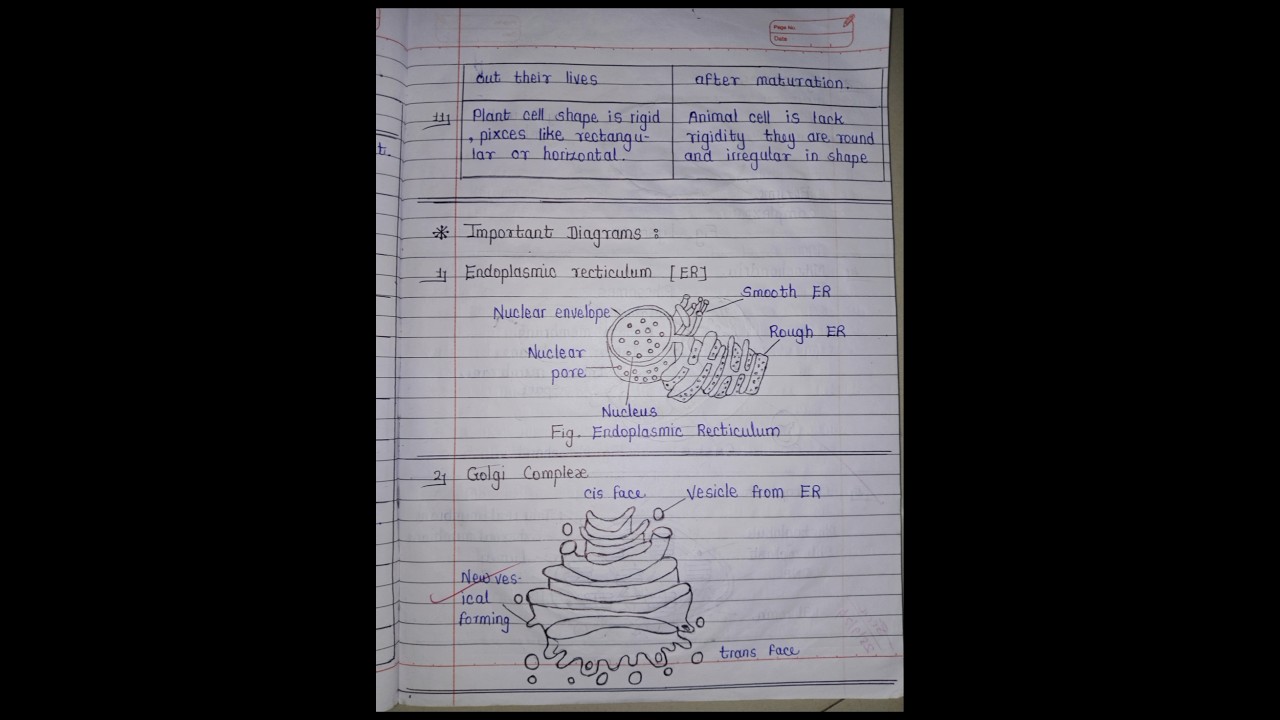 Page No.
Date
out their lives
after maturation.
t.
11)
Plant cell shape is rigid
, pixces like rectangu-
lar or horizontal.
Animal cell is lack
rigidity they are round
and irregular in shape
* Important Diagrams :
1) Endoplasmic recticulum [ER]
Smooth ER
Nuclear envelope
Rough ER
Nuclear
pore
Nucleus
Fig. Endoplasmic Recticulum
2) Golgi Complex
cis face
Vesicle from ER
New ves-
ical
forming
trans face